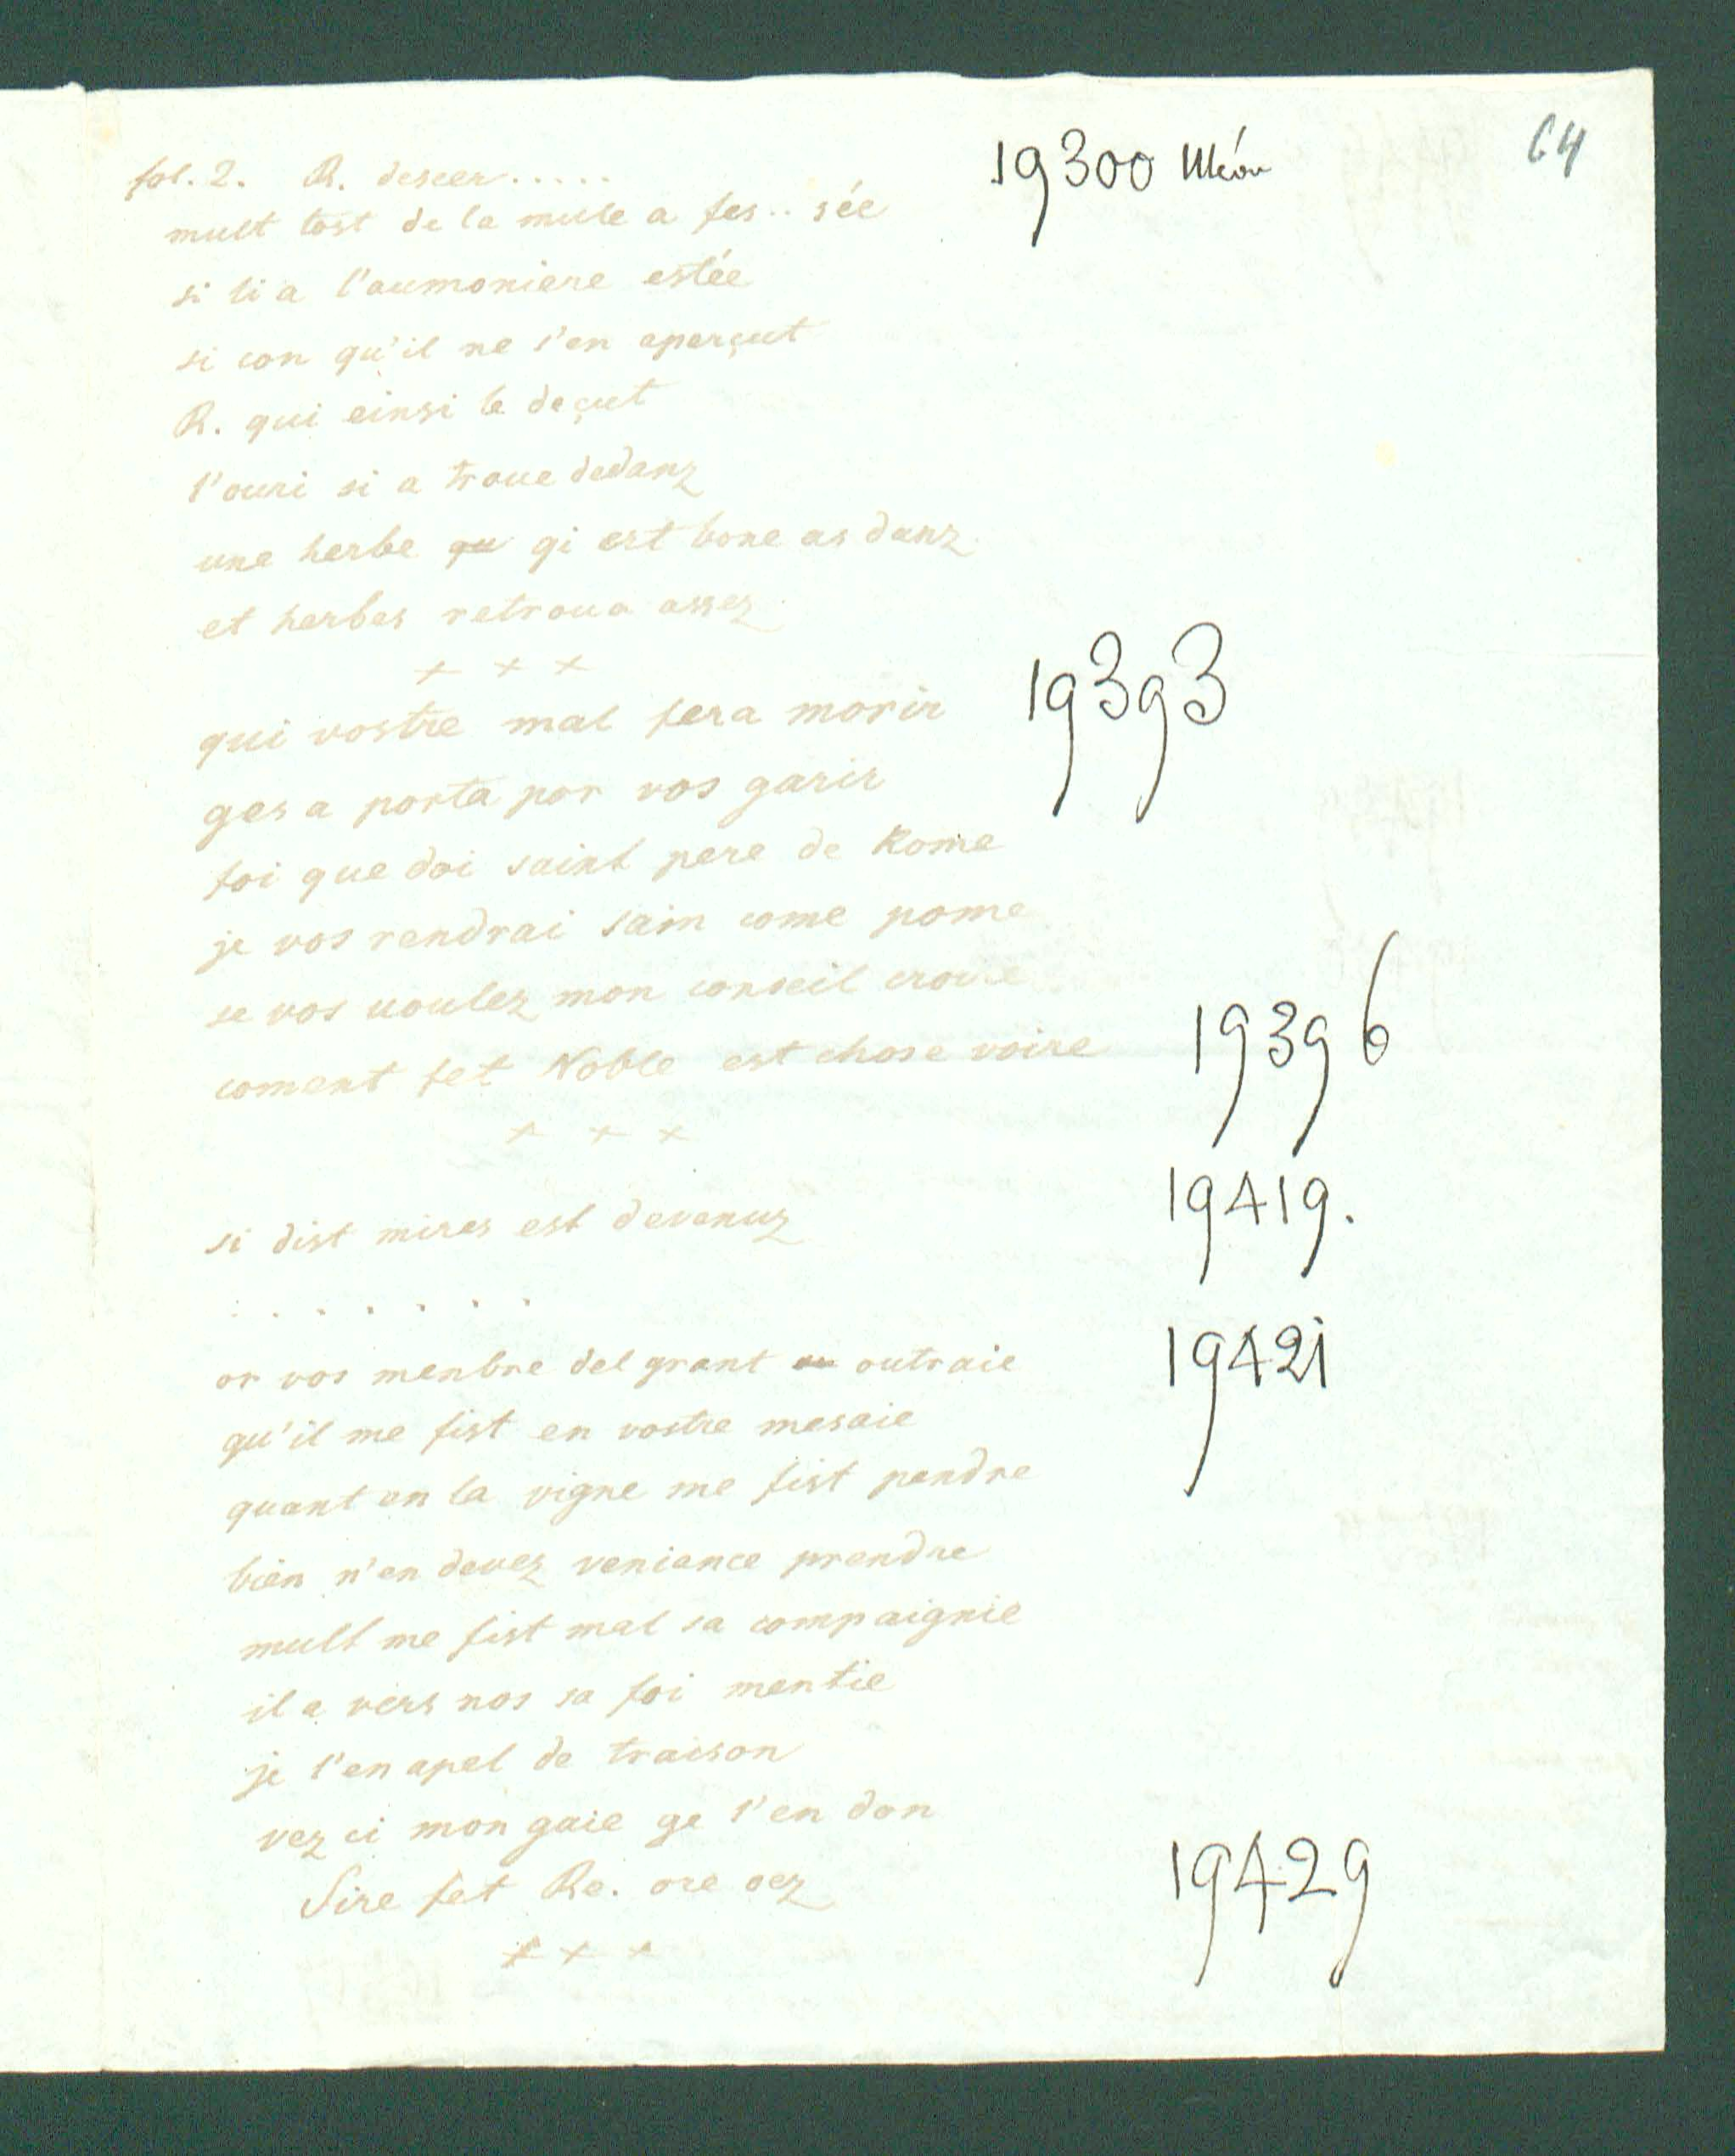 64
fol. 2. R. descen..... 19300 Méon
mult tost de la mule a fes.. sée
si li a l'aumoniere estée
si con qu'il ne s'en aperçut
R. qui einsi le deçut
l'ouri si a troue dedanz
une herbe qu gi est bone as danz
et herbes retroua assez
+ × ×
qui vostre mal fera morir 19393
ges a porta por vos garir
foi que doi saint pere de Rome
je vos rendrai sain come pome
se vos uoulez mon conseil croire
coment fet Noble est chose voire 19396
× × ×
si dist mires est devenuz 19419.
. . . . . . .
or vos menbre del grant ou outraie 19421
qu'il me fist en vostre mesaie
quant en la vigne me fist pendre
bien n'en devez veniance prendre
mult me fist mal sa compaignie
il a vers nos sa foi mentie
je l'en apel de traison
vez ci mon gaie ge l'en don
Sire fet Re. ore oez 19429
× × ×